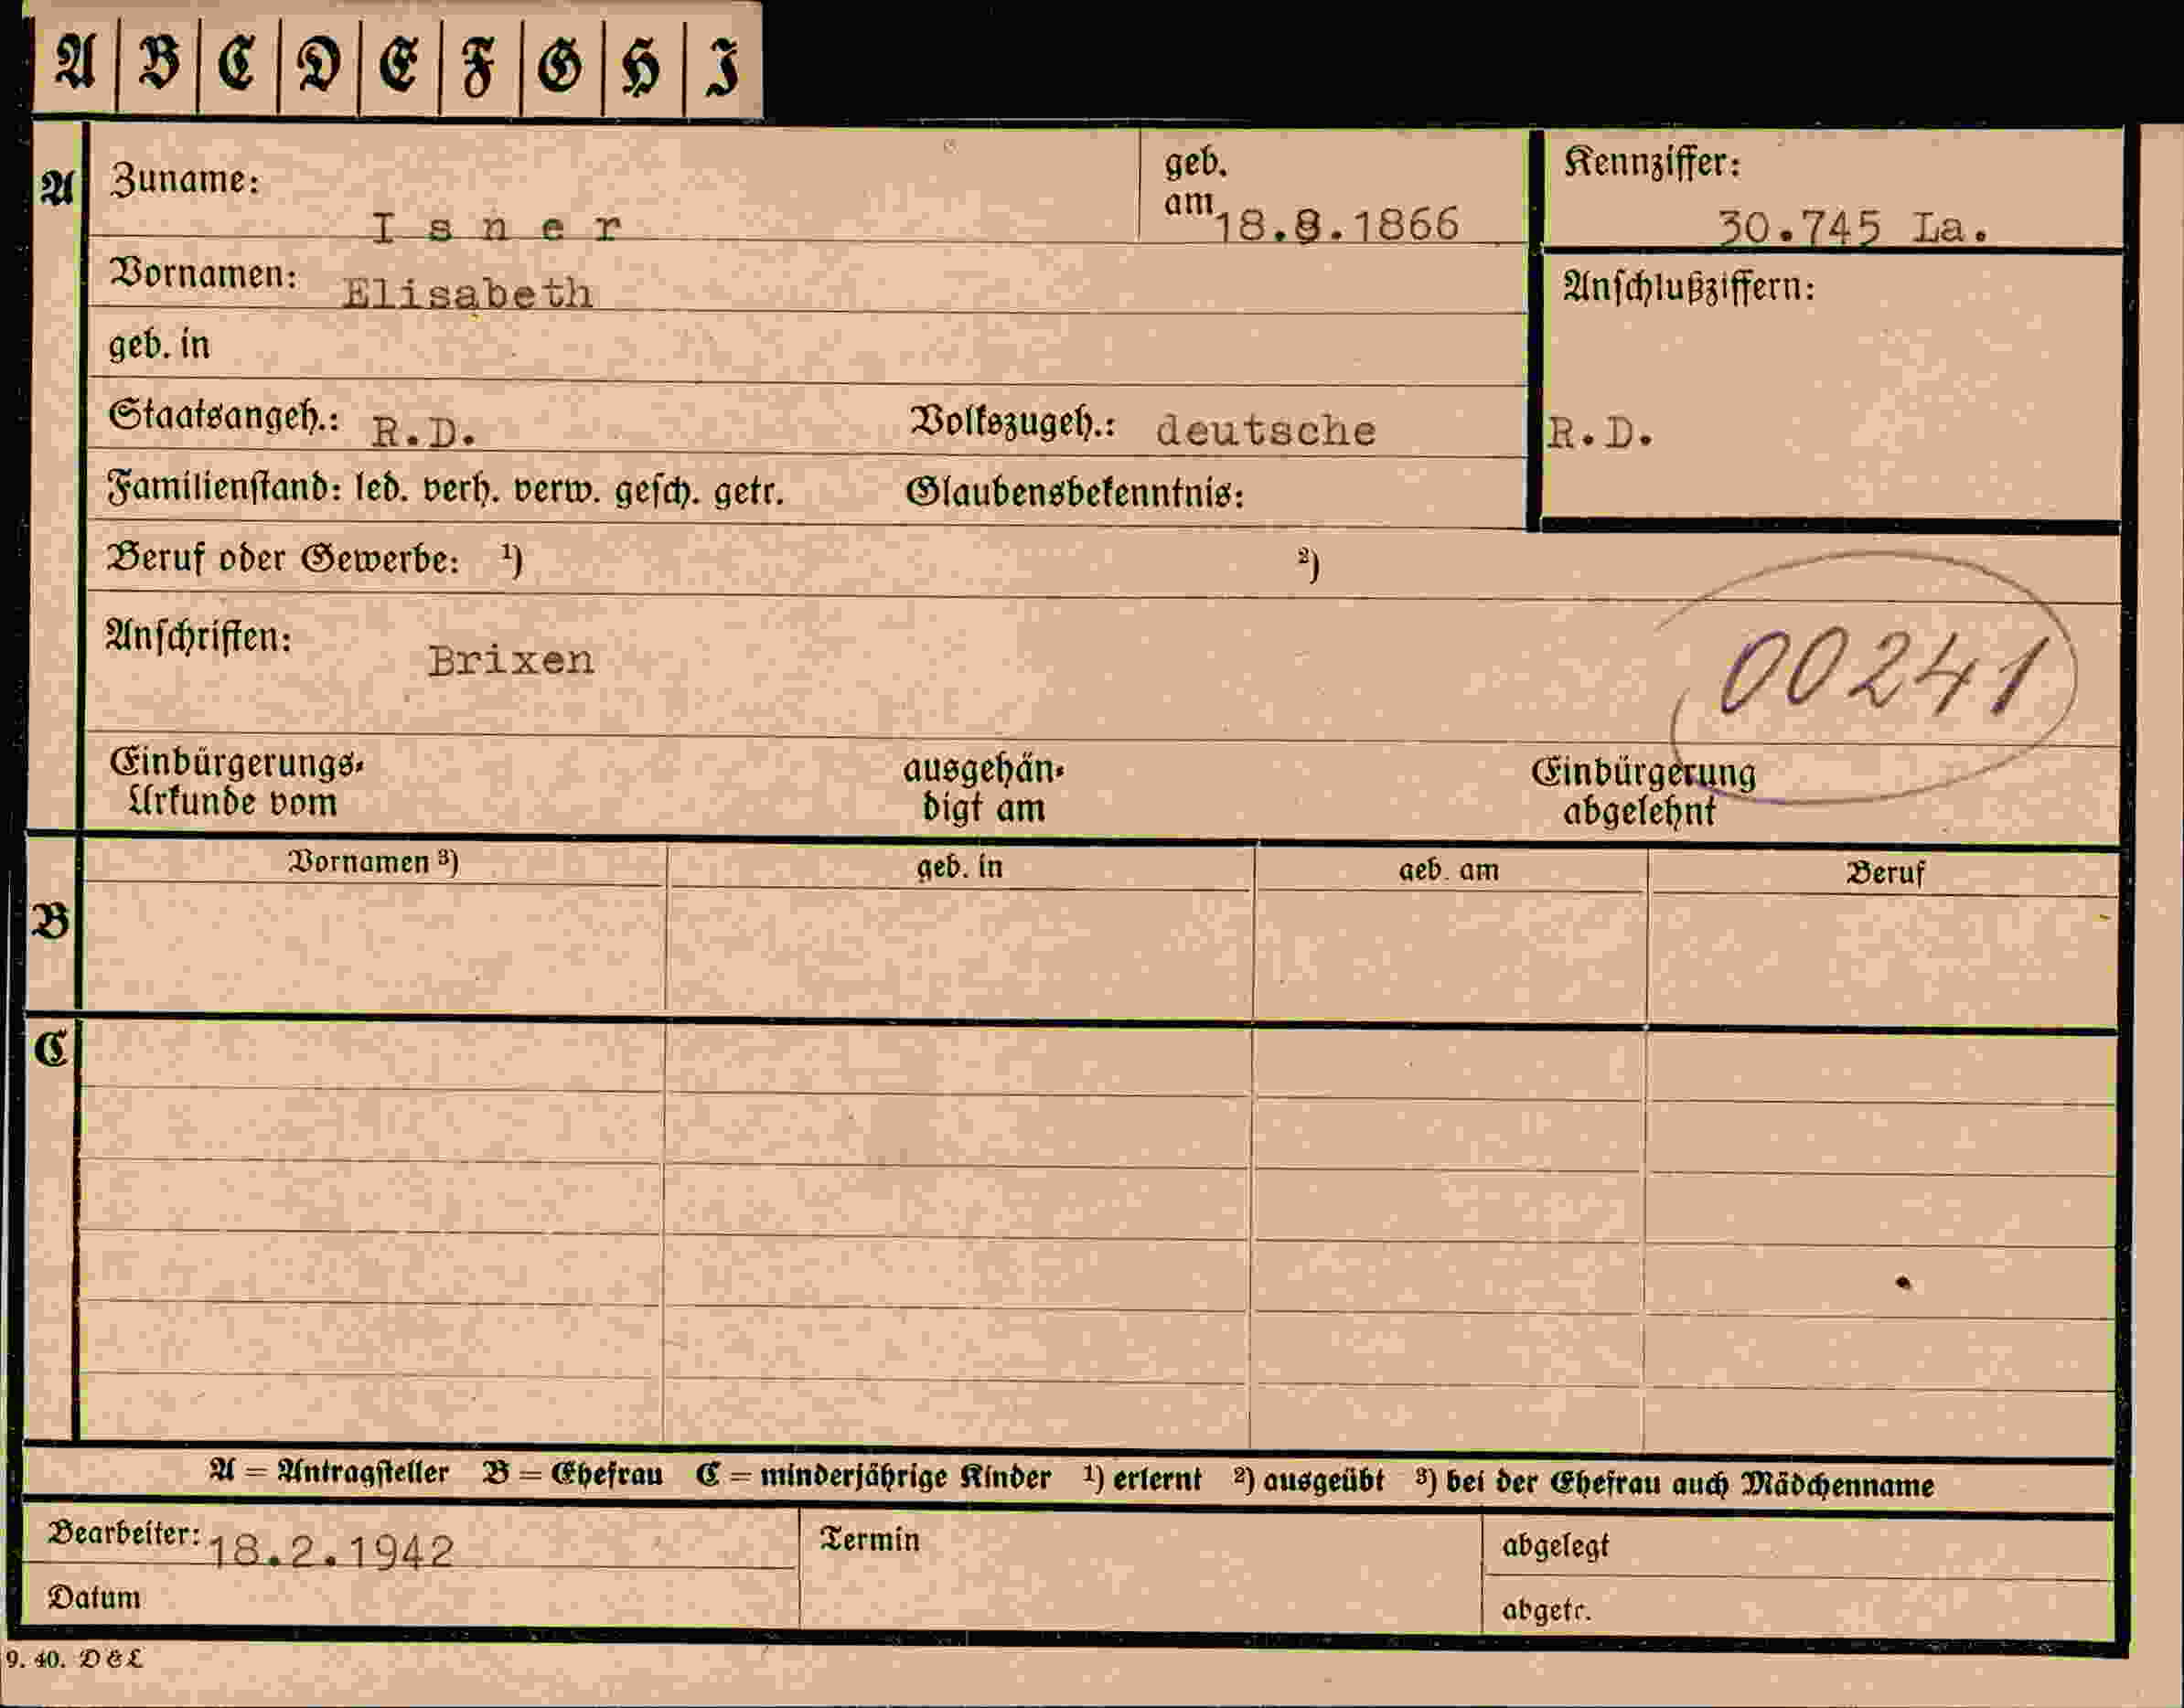 A B C D E F G H I
A Zuname: Isner geb. am 18.8.1866 Kennziffer: 30.745 La.
Vornamen: Elisabeth Anschlußziffern:
geb. in
Staatsangeh.: R.D. Volkszugeh.: deutsche R.D.
Familienstand: led. verh. verw. gesch. getr. Glaubensbekenntnis:
Beruf oder Gewerbe: ¹) ²)
Anschriften: Brixen 00241
Einbürgerungs- ausgehän- Einbürgerung
Urkunde vom digt am abgelehnt
Vornamen ³) geb. in geb. am Beruf
B
C
A = Antragsteller B = Ehefrau C = minderjährige Kinder ¹) erlernt ²) ausgeübt ³) bei der Ehefrau auch Mädchenname
Bearbeiter: 18.2.1942 Termin abgelegt
Datum abgetr.
9. 40. D & L